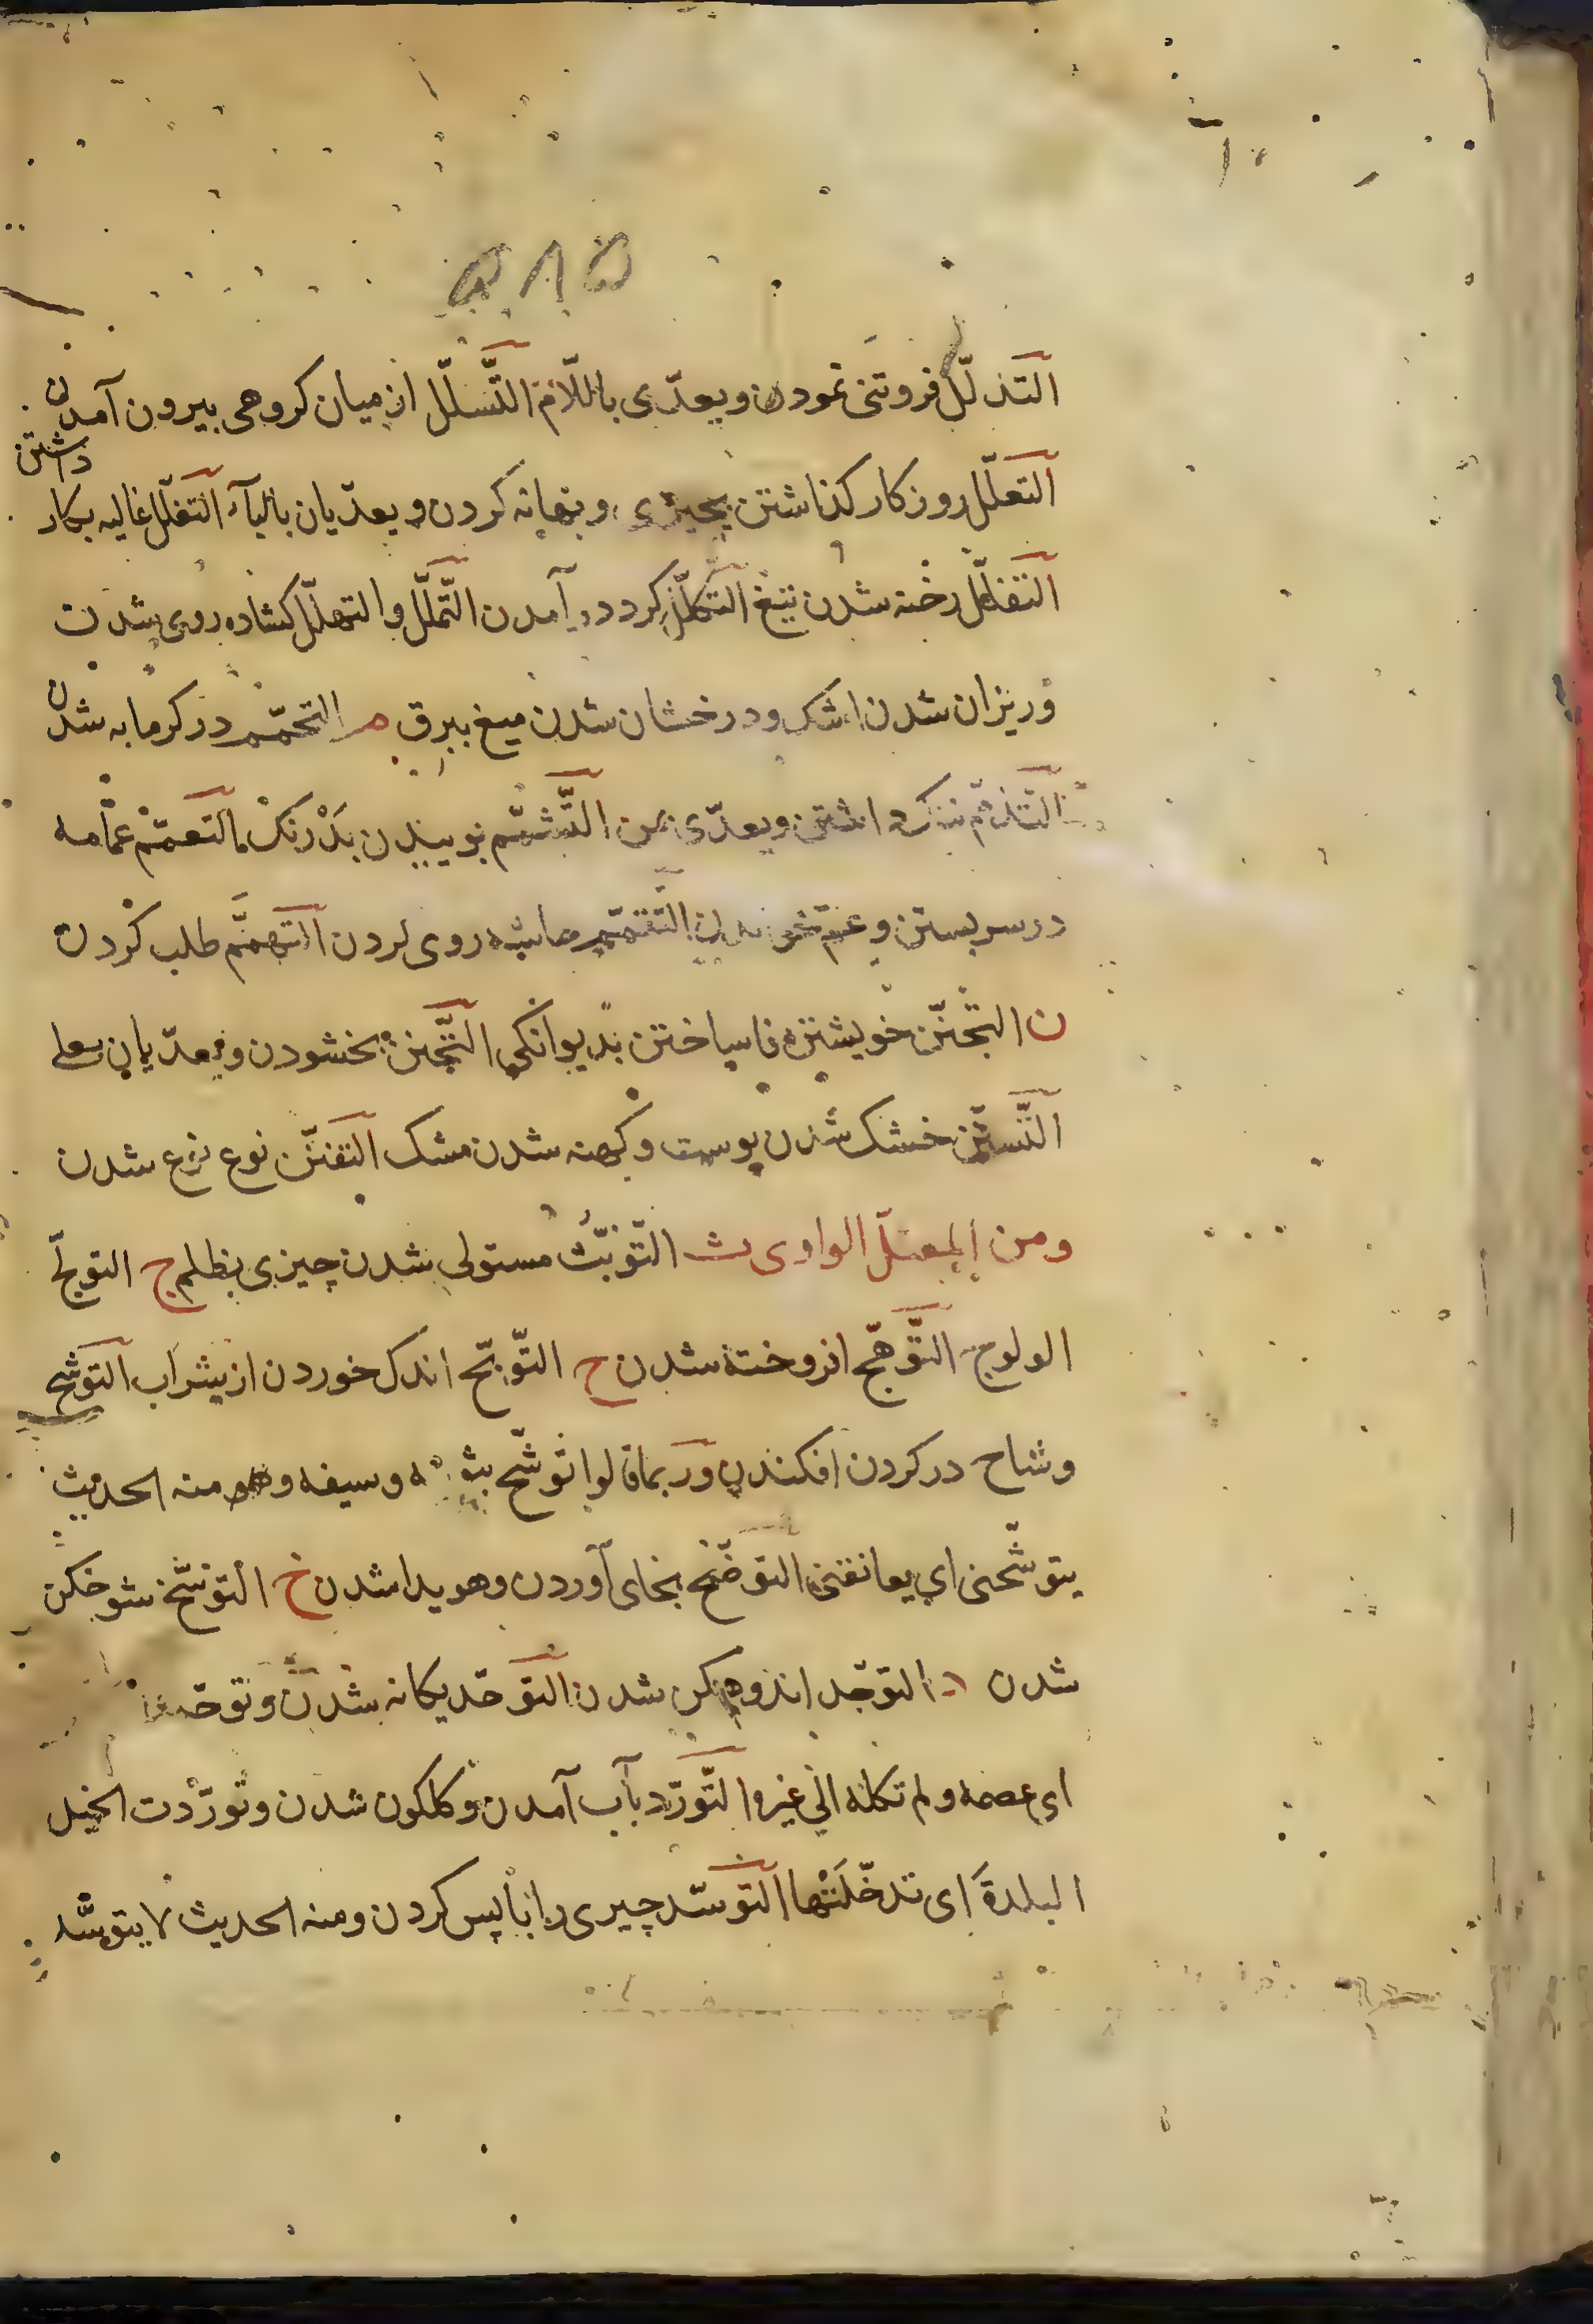 ۵۸۵
التذلّل فروتنی نمودن ویعدّی باللّام التَّسلّل از میان کروهی بیرون آمدن
التعلّل روزکار کذاشتن بچیزی وبهانه کردن ویعدّیان بالبآء التغلّل غالیه بکار
داشتن
التفلّل رخنه شدن تیغ التکلّل کرد در آمدن التَّملّل والتهلّل کشاده روی شدن
وریزان شدن اشک ودرخشان شدن میغ ببرق م التحمّم در کرمابه شدن
التذمّم ننک داشتن ویعدّی بمن التَّشمّم بوییدن بدْرنکْ التعمّم عمّامه
در سر بستن وعمّ التَّقمّم روی کردن التهمَّم طلب کردن
ن التجنّن خویشتن فاساختن بدیوانکی التَّحنّن بخشودن ویعدّیان بعلی
التَّسنّن خشک شدن پوست وکهنه شدن مشک التفنّن نوع نوع شدن
ومن المعتلّ الواوی ث التّوثّب مستولی شدن چیزی بظلم ج التولّج
الولوج التَّوهّج افروخته شدن ح التّوتّح اندک خوردن از شراب التوشّح
وشاح در کردن افکندن وربما قالوا توشّح بثوبه وسیفه ومنه الحدیث
یتوشّحنی ای یعانقنی التوضّح بجای آوردن وهویدا شدن خ التوسّخ شوخکن
شدن د التوجّد اندوهکن شدن التوحّد یکانه شدن وتوحّد
ای عصمه ولم تکله الی غیره التَّورّد بآب آمدن وکلکون شدن وتورّدت الخیل
البلدةَ ای تدخّلَتْها التوسّد چیزی را بالیس کردن ومنه الحدیث لا یتوسّد